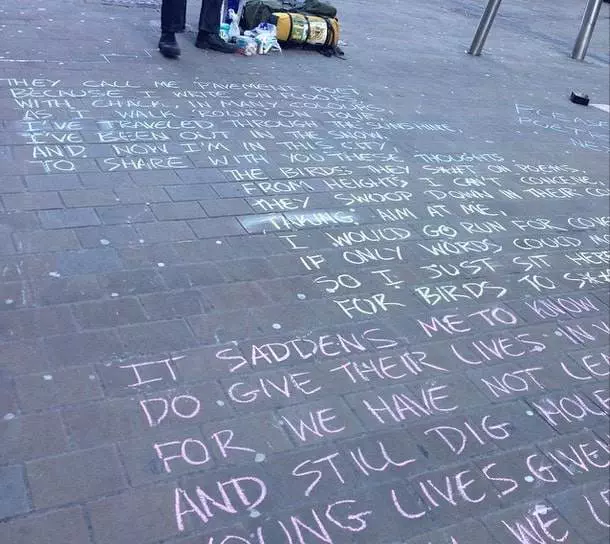 THEY CALL ME PAVEMENT POET,
BECAUSE I WRITE ON FLOORS,
WITH CHALK, IN MANY COLOURS,
AS I WALK 'ROUND ON TOUR.
I'VE TRAVELED THROUGH THE SUNSHINE,
I'VE BEEN OUT IN THE SNOW,
AND NOW I'M IN THIS CITY
TO SHARE WITH YOU THESE THOUGHTS
THE BIRDS THEY SH*T ON POEMS,
FROM HEIGHTS I CAN'T CONCEIVE
THEY SWOOP DOWN IN THEIR
TAKING AIM AT ME,
I WOULD GO RUN FOR
IF ONLY WORDS COULD
SO I JUST SIT HERE
FOR BIRDS TO
IT SADDENS ME TO KNOW
DO GIVE THEIR LIVES IN
FOR WE HAVE NOT
AND STILL DIG
YOUNG LIVES
WE